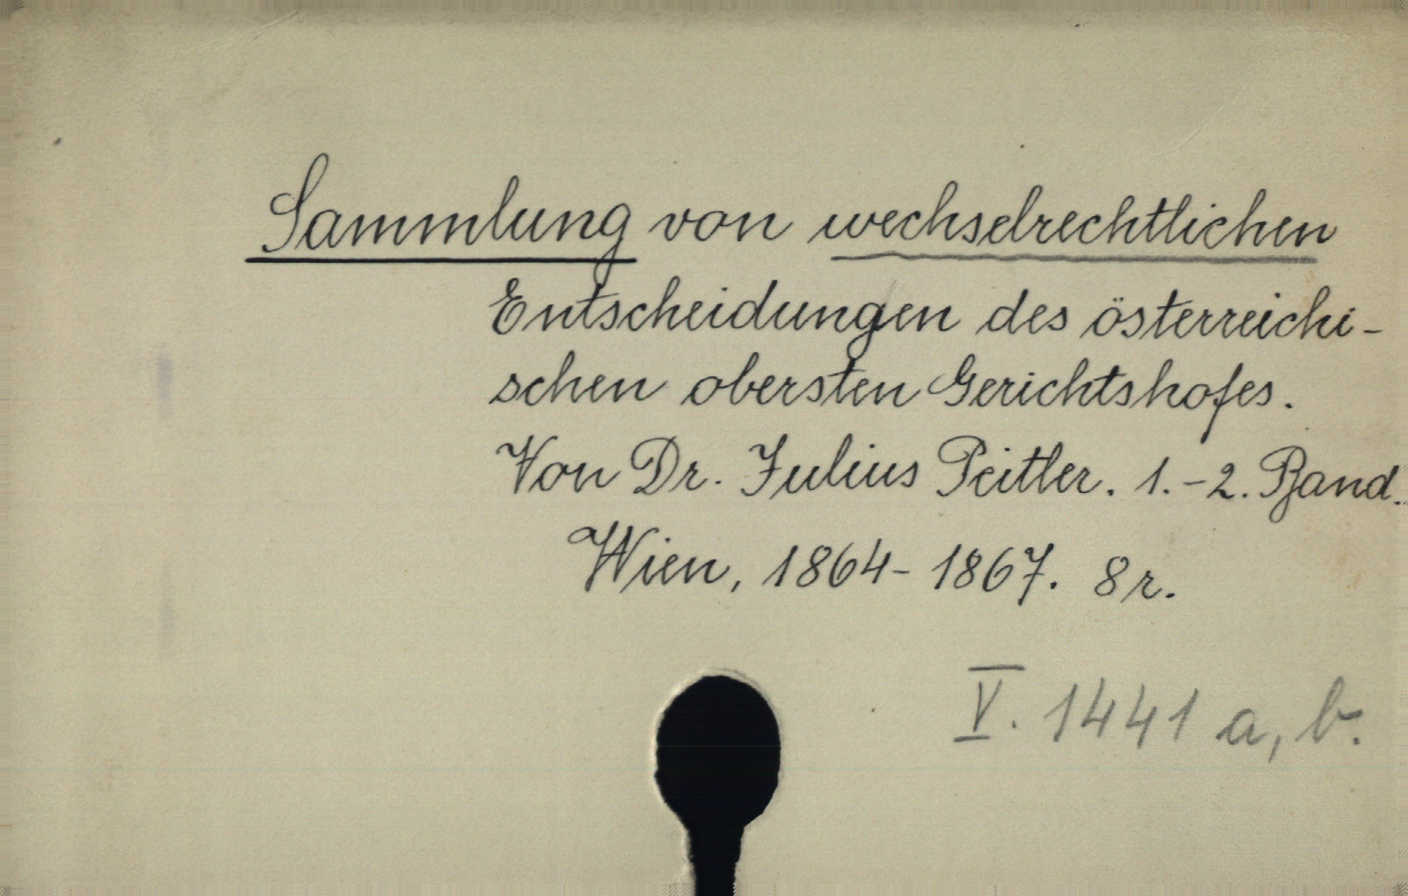 Sammlung von wechselrechtlichen
Entscheidungen des österreichi-
schen obersten Gerichtshofes.
Von Dr. Julius Peitler. 1.-2. Band.
Wien, 1864-1867. 8r.
V. 1441 a, b.